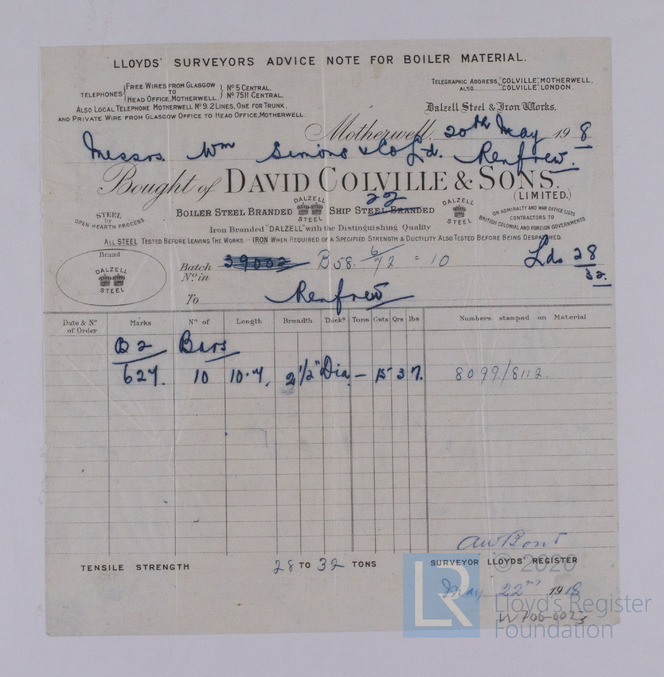 LLOYDS' SURVEYORS ADVICE NOTE FOR BOILER MATERIAL.
TELEPHONES { FREE WIRES FROM GLASGOW TO HEAD OFFICE, MOTHERWELL. } Nº 5 CENTRAL. Nº 7511 CENTRAL.
ALSO LOCAL TELEPHONE MOTHERWELL Nº 9. 2 LINES, ONE FOR TRUNK,
AND PRIVATE WIRE FROM GLASGOW OFFICE TO HEAD OFFICE, MOTHERWELL.
TELEGRAPHIC ADDRESS, "COLVILLE", MOTHERWELL.
ALSO "COLVILLE", LONDON.
Dalzell Steel & Iron Works.
Motherwell, 20th May 1918
Messrs. Wm Simons & Co Ld. Renfrew.
Bought of DAVID COLVILLE & SONS.
(LIMITED.)
22
STEEL by OPEN HEARTH PROCESS
BOILER STEEL BRANDED DALZELL STEEL SHIP STEEL BRANDED DALZELL STEEL
ON ADMIRALTY AND WAR OFFICE LISTS
CONTRACTORS TO
BRITISH COLONIAL AND FOREIGN GOVERNMENTS
Iron Branded "DALZELL" with the Distinguishing Quality
ALL STEEL TESTED BEFORE LEAVING THE WORKS. – IRON WHEN REQUIRED OF A SPECIFIED STRENGTH & DUCTILITY ALSO TESTED BEFORE BEING DESPATCHED.
Brand
DALZELL STEEL
Batch Nº in 39002 B58. 6/72 = 10
Lds 28/32.
To Renfrew
Date & Nº of Order Marks Nº of Length Breadth Thickˢ Tons Cwts Qrs lbs Numbers stamped on Material
B2 Bars
627. 10 10.7. 2 1/2" Dia – 15 3 7. 8099/8112.
AW Bont
TENSILE STRENGTH 28 TO 32 TONS SURVEYOR LLOYDS' REGISTER
May 22nd 1918
W706-0023
© 2020
LR Lloyd's Register
Foundation